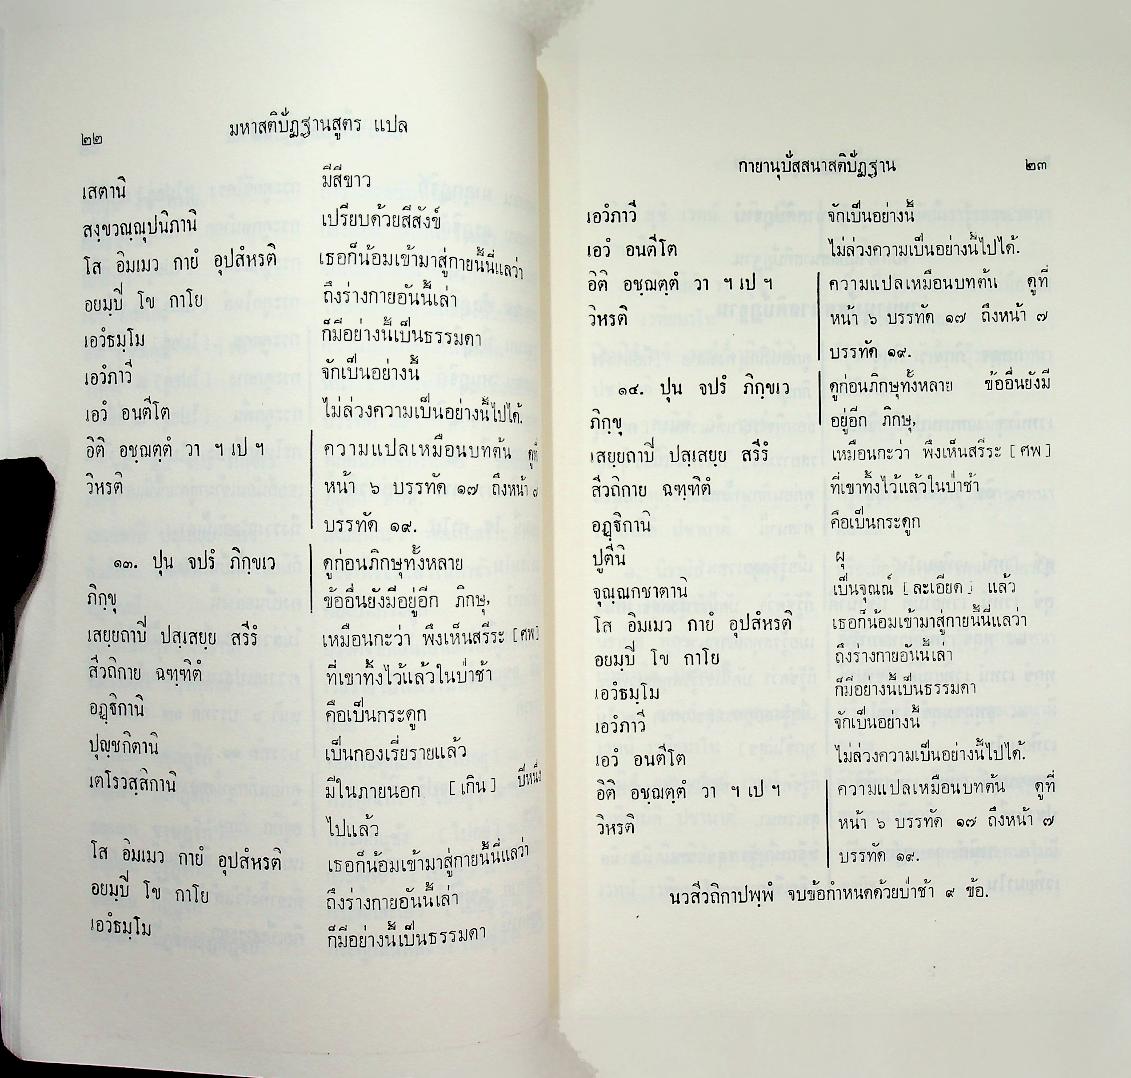 ๒๒ มหาสติปัฏฐานสูตร แปล
เสตานิ มีสีขาว
สงฺขวณฺณุปนิภานิ เปรียบด้วยสีสังข์
โส อิมเมว กายํ อุปสํหรติ เธอก็น้อมเข้ามาสู่กายนี้นี่แลว่า
อยมฺปิ โข กาโย ถึงร่างกายอันนี้เล่า
เอวํธมฺโม ก็มีอย่างนี้เป็นธรรมดา
เอวํภาวี จักเป็นอย่างนี้
เอวํ อนตีโต ไม่ล่วงความเป็นอย่างนี้ไปได้.
อิติ อชฺฌตฺตํ วา ฯ เป ฯ ความแปลเหมือนบทต้น ดูที่
วิหรติ หน้า ๖ บรรทัด ๑๗ ถึงหน้า ๗
บรรทัด ๑๙.
๑๓. ปุน จปรํ ภิกฺขเว ดูก่อนภิกษุทั้งหลาย
ภิกฺขุ ข้ออื่นยังมีอยู่อีก ภิกษุ,
เสยฺยถาปิ ปสฺเสยฺย สรีรํ เหมือนกะว่า พึงเห็นสรีระ [ศพ]
สีวถิกาย ฉฑฺฑิตํ ที่เขาทิ้งไว้แล้วในป่าช้า
อฏฺฐิกานิ คือเป็นกระดูก
ปุญฺชกิตานิ เป็นกองเรี่ยรายแล้ว
เตโรวสฺสิกานิ มีในภายนอก [เกิน] ปีหนึ่ง
ไปแล้ว
โส อิมเมว กายํ อุปสํหรติ เธอก็น้อมเข้ามาสู่กายนี้นี่แลว่า
อยมฺปิ โข กาโย ถึงร่างกายอันนี้เล่า
เอวํธมฺโม ก็มีอย่างนี้เป็นธรรมดา
กายานุปัสสนาสติปัฏฐาน ๒๓
เอวํภาวี จักเป็นอย่างนี้
เอวํ อนตีโต ไม่ล่วงความเป็นอย่างนี้ไปได้.
อิติ อชฺฌตฺตํ วา ฯ เป ฯ ความแปลเหมือนบทต้น ดูที่
วิหรติ หน้า ๖ บรรทัด ๑๗ ถึงหน้า ๗
บรรทัด ๑๙.
๑๔. ปุน จปรํ ภิกฺขเว ดูก่อนภิกษุทั้งหลาย ข้ออื่นยังมี
ภิกฺขุ อยู่อีก ภิกษุ,
เสยฺยถาปิ ปสฺเสยฺย สรีรํ เหมือนกะว่า พึงเห็นสรีระ [ศพ]
สีวถิกาย ฉฑฺฑิตํ ที่เขาทิ้งไว้แล้วในป่าช้า
อฏฺฐิกานิ คือเป็นกระดูก
ปูตีนิ ผุ
จุณฺณกชาตานิ เป็นจุณณ์ [ละเอียด] แล้ว
โส อิมเมว กายํ อุปสํหรติ เธอก็น้อมเข้ามาสู่กายนี้นี่แลว่า
อยมฺปิ โข กาโย ถึงร่างกายอันนี้เล่า
เอวํธมฺโม ก็มีอย่างนี้เป็นธรรมดา
เอวํภาวี จักเป็นอย่างนี้
เอวํ อนตีโต ไม่ล่วงความเป็นอย่างนี้ไปได้.
อิติ อชฺฌตฺตํ วา ฯ เป ฯ ความแปลเหมือนบทต้น ดูที่
วิหรติ หน้า ๖ บรรทัด ๑๗ ถึงหน้า ๗
บรรทัด ๑๙.
นวสีวถิกาปพฺพํ จบข้อกำหนดด้วยป่าช้า ๙ ข้อ.